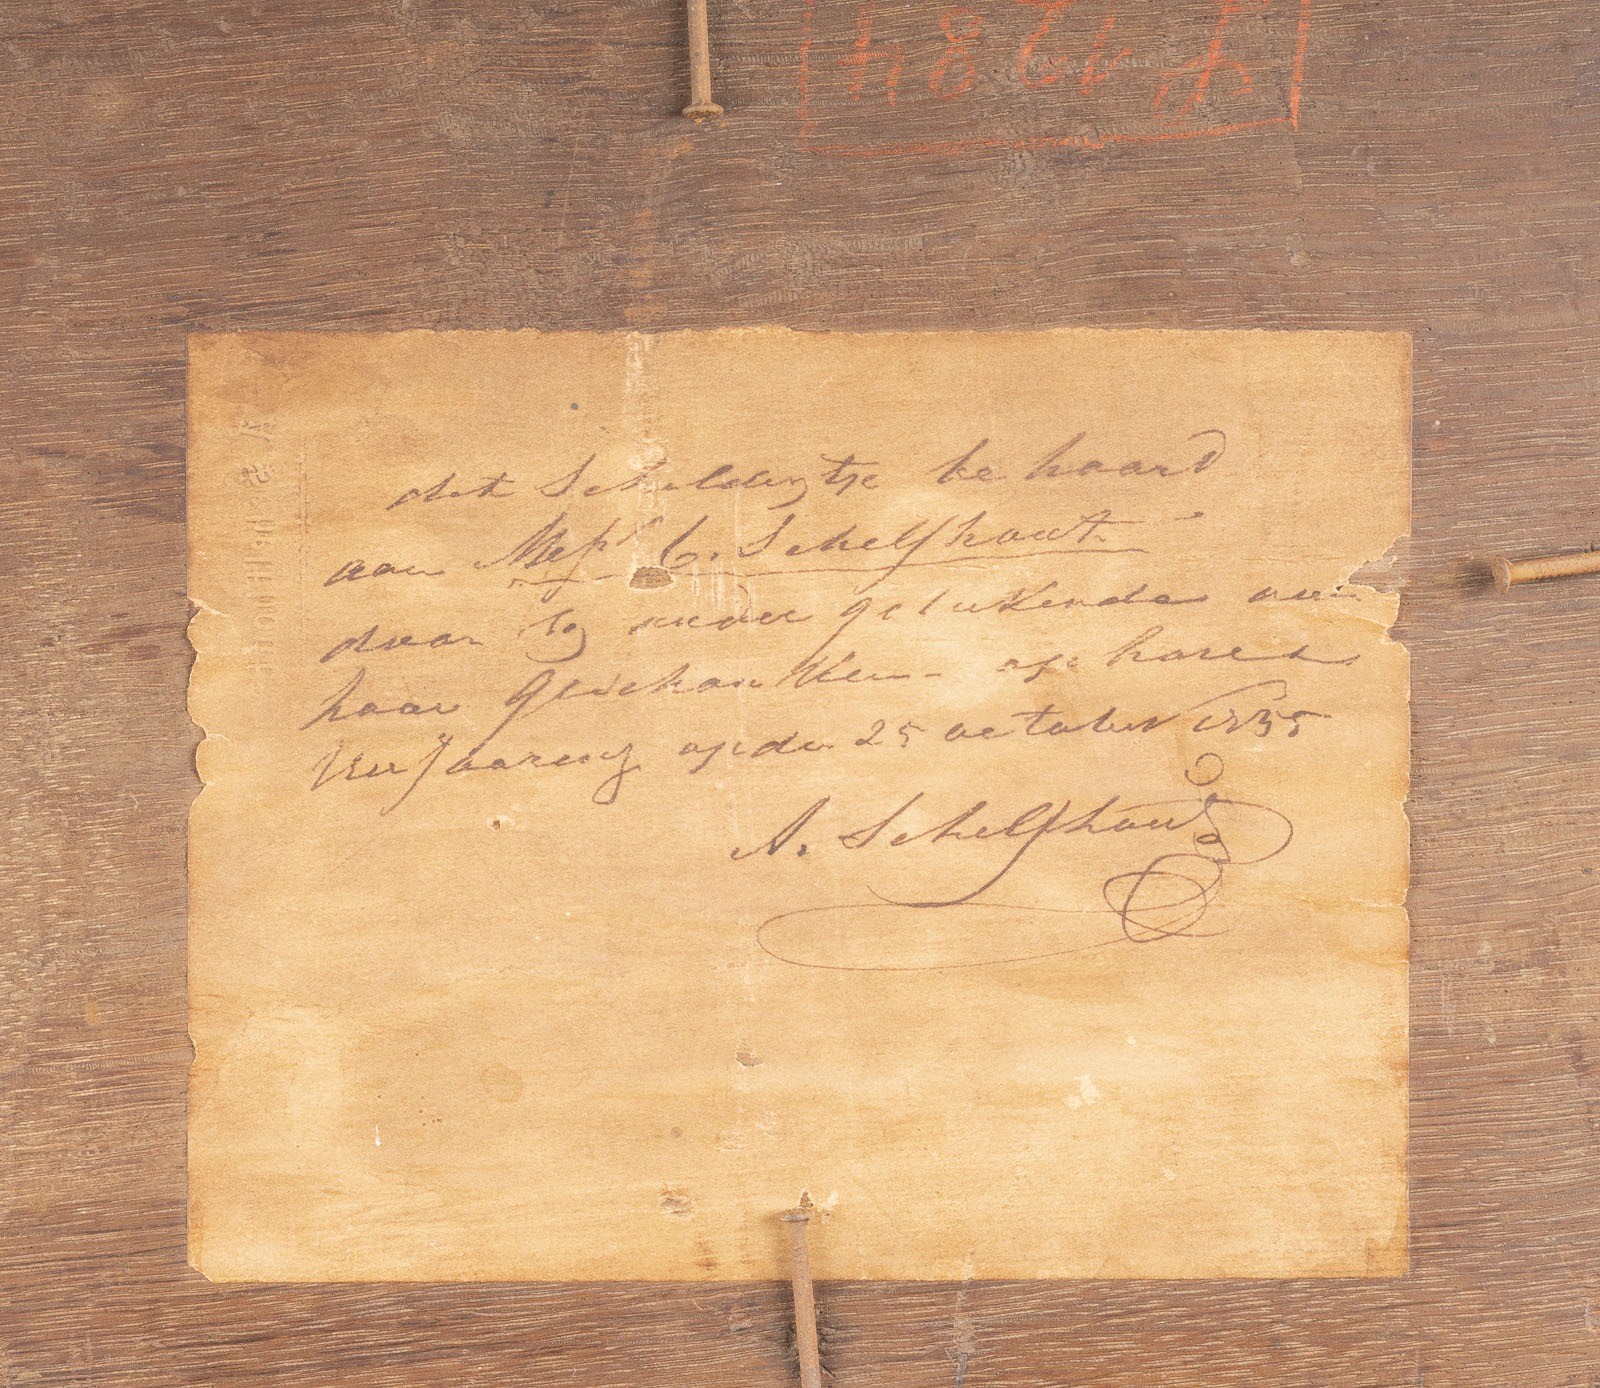 4284
dit Schilderytje be hoord
aan Mejr C. Schelfhout
door de onder getekende aan
haar geschonken op haren
Verjaaring op den 25 october 1835
A. Schelfhout